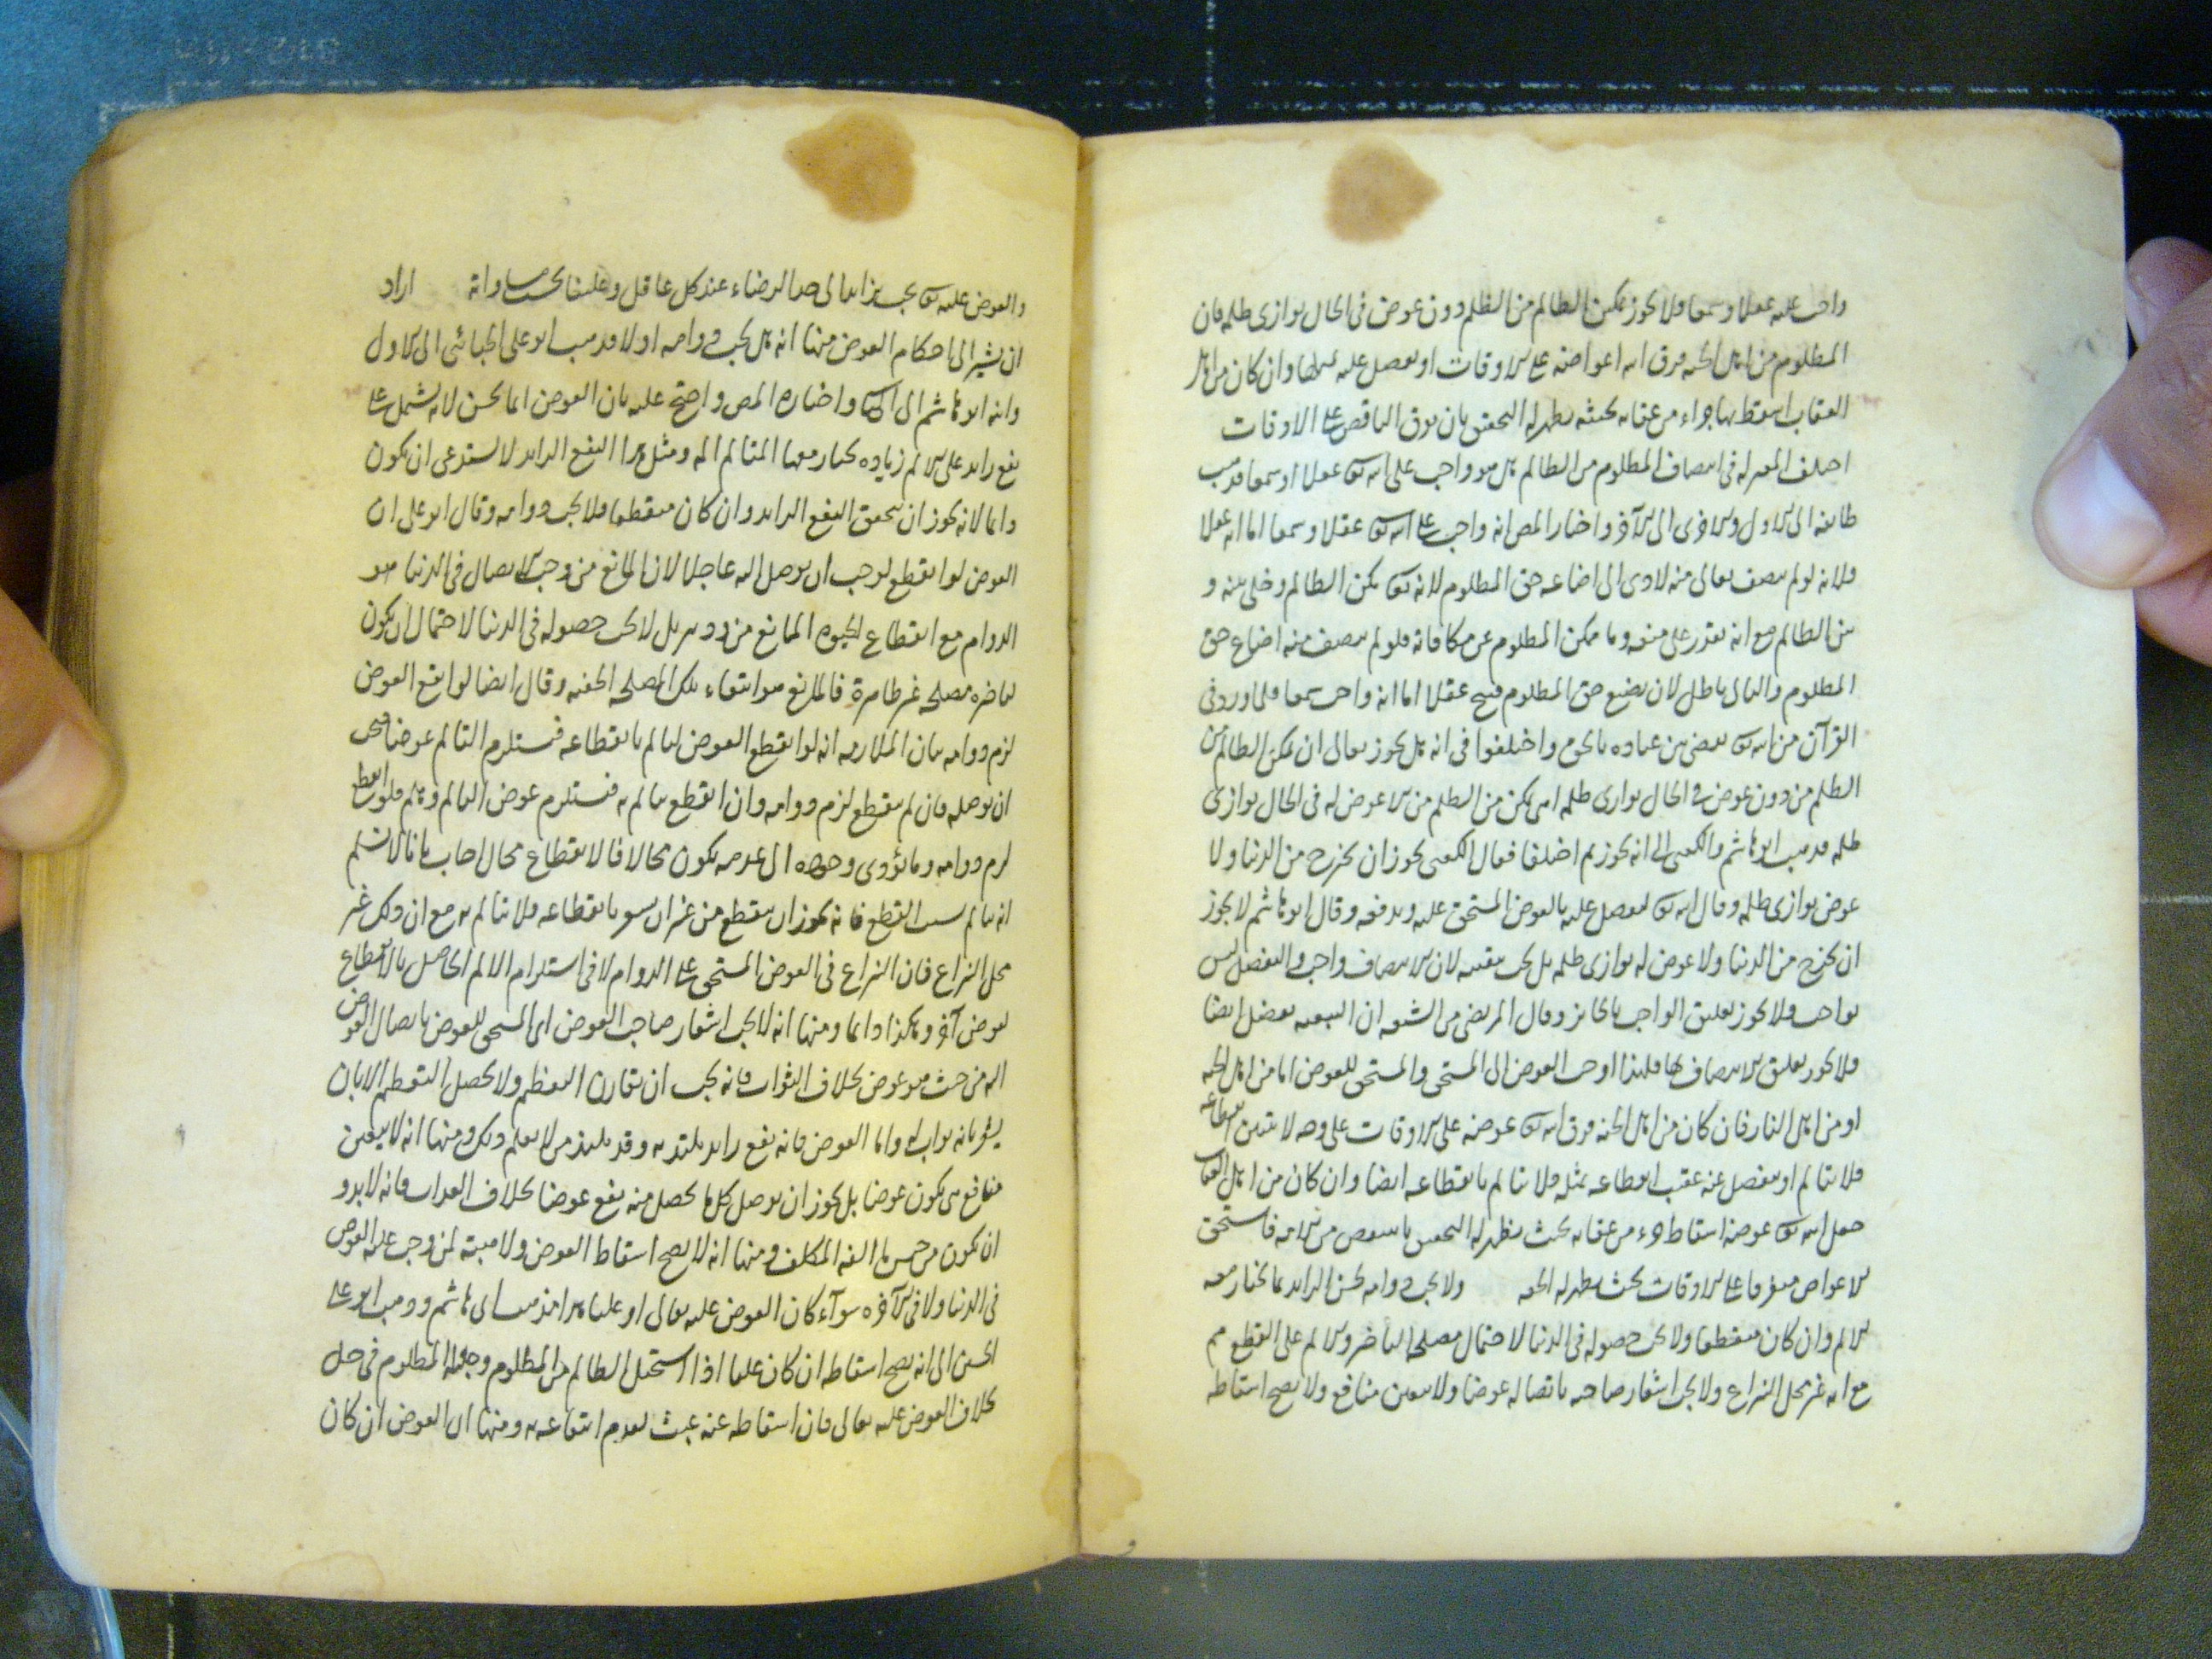 واجب عليه عقلا وسمعا فلا يجوز تمكين الظالم من الظلم دون عوض فى الحال يوازى ظلمه فان
المظلوم من اهل الجنة فرق الله اعواضه على الاوقات او تفضل عليه بمثلها وان كان من اهل
العقاب اسقط بها جزاء من عقابه بحيث لا يظهر له التخفيف بان يفرق الناقص على الاوقات
اختلف المعتزلة فى انتصاف المظلوم من الظالم هل هو واجب على الله تعالى عقلا او سمعا فذهب
طائفة الى الاول والاخرى الى الآخر واختار المص انه واجب على الله تعالى عقلا وسمعا اما انه عقلا
فلانه لو لم ينتصف تعالى منه لادى الى اضاعة حق المظلوم لانه تعالى مكن الظالم وخلى بينه و
بين الظالم مع انه يقدر على منعه وما مكن المظلوم من مكافاته فلو لم ينتصف منه اضاع حق
المظلوم والتالى باطل لان تضييع حق المظلوم قبيح عقلا اما انه واجب سمعا فلما ورد فى
القرآن من الله تعالى يقضى بين عباده بالحق واختلفوا فى انه هل يجوز تعالى ان يمكن الظالم من
الظلم من دون عوض فى الحال يوازى ظلمه اى يمكن من الظلم من لا عوض له فى الحال يوازى
ظلمه فذهب ابو هاشم والكعبى الى انه يجوز ثم اختلفا فقال الكعبى يجوز ان يخرج من الدنيا ولا
عوض يوازى ظلمه وقال الله تعالى يتفضل عليه بالعوض المستحق عليه ويدفعه وقال ابو هاشم لا يجوز
ان يخرج من الدنيا ولا عوض له يوازى ظلمه بل يجب تبقيته لان الانتصاف واجب والتفضل ليس
بواجب ولا يجوز تعليق الواجب بالجائز وقال المرتضى من الشيعة ان التبقية تفضل ايضا
فلا يجوز تعليق الانتصاف بها فلهذا اوجب العوض الى المستحق والمستحق للعوض اما من اهل الجنة
او من اهل النار فان كان من اهل الجنة فرق الله تعالى عوضه على الاوقات على وجه لا يتبين انقطاعه
فلا يتألم او يتفضل عنه عقيب انقطاعه بمثله فلا يتألم بانقطاعه ايضا وان كان من اهل العقاب
جعل الله تعالى عوضه اسقاط جزء من عقابه بحيث لا يظهر له التخفيف بانتقاص من آلامه فاستحق
الاعواض متفرقا على الاوقات بحيث لا يظهر له الخفة ولا يجب دوامه لحسن الزائد بما يختار معه
الالم وان كان منقطعا ولا يجب حصوله فى الدنيا لاحتمال مصلحة التاخير والالم على القطع مم
مع انه غير محل النزاع ولا يجب اشعار صاحبه بايصاله عوضا ولا يتعين منافع ولا يصح اسقاطه
والعوض عليه تعالى يجب تزايده الى حد الرضاء عند كل عاقل وعلينا يجب مساواته اراد
ان يشير الى احكام العوض منها انه هل يجب دوامه اولا فذهب ابو على الجبائى الى الاول
وابنه ابو هاشم الى الثانى واختاره المص واحتج عليه بان العوض انما يحسن لانه يشتمل على
نفع زائد على الالم زيادة يختار معها المتألم المه ومثل هذا النفع الزائد لا يستدعى ان يكون
دائما لانه يجوز ان يتحقق النفع الزائد وان كان منقطعا فلا يجب دوامه وقال ابو على ان
العوض لو انقطع لوجب ان يوصل اليه عاجلا لان المانع من وجوب الايصال فى الدنيا هو
الدوام مع انقطاع الحيوة المانع من دوامه بل لا يجب حصوله فى الدنيا لاحتمال ان يكون
لتاخيره مصلحة غير ظاهرة فالمانع هو انتفاء تلك المصلحة الخفية وقال ايضا لو انقطع العوض
لزم دوامه بيان الملازمة انه لو انقطع العوض لتألم بانقطاعه فيستلزم التألم عوضا فيجب
ان يوصله فان لم ينقطع لزم دوامه وان انقطع يتألم به فيستلزم عوض التألم وهلم فلو انقطع
لزم دوامه وما يؤدى وجوده الى عدمه يكون محالا فالانقطاع محال اجاب بانا لا نسلم
انه يتألم بسبب القطع فانه يجوز ان ينقطع من غير ان يشعر بانقطاعه فلا يتألم به مع ان ذلك غير
محل النزاع فان النزاع فى العوض المستحق على الدوام لا فى استلزام الالم الحاصل بالانقطاع
لعوض آخر وهكذا دائما ومنها انه لا يجب اشعار صاحب العوض اى المستحق للعوض بايصال العوض
اليه من حيث هو عوض بخلاف الثواب فانه يجب ان يقارن التعظيم ولا يحصل التعظيم الا بان
يشعر بانه ثواب له واما العوض فانه نفع زائد يلتذ به وقد يلتذ من لا يعلم ذلك ومنها انه لا يتعين
منافع تكون عوضا بل يجوز ان يوصل كل ما يحصل منه نفع عوضا بخلاف الثواب فانه لا بد و
ان يكون من جنس ما الفه المكلف ومنها انه لا يصح اسقاط العوض ولا هبته لمن وجب عليه العوض
فى الدنيا ولا فى الآخرة سواء كان العوض عليه تعالى او علينا هذا مذهب ابى هاشم وذهب ابو على
الحسين الى انه يصح اسقاطه ان كان علينا اذا استحل الظالم من المظلوم وجعله المظلوم فى حل
بخلاف العوض عليه تعالى فان اسقاطه عنه عبث لعدم انتفاعه به ومنها ان العوض ان كان